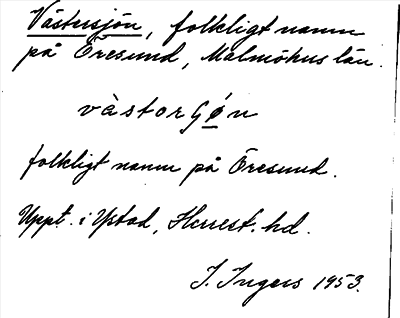 Västersjön, folkligt namn
på Öresund, Malmöhus län.
vàstorʃø̱n
folkligt namn på Öresund.
Uppt. i Ystad, Herrest. hd.
I. Ingers 1953.